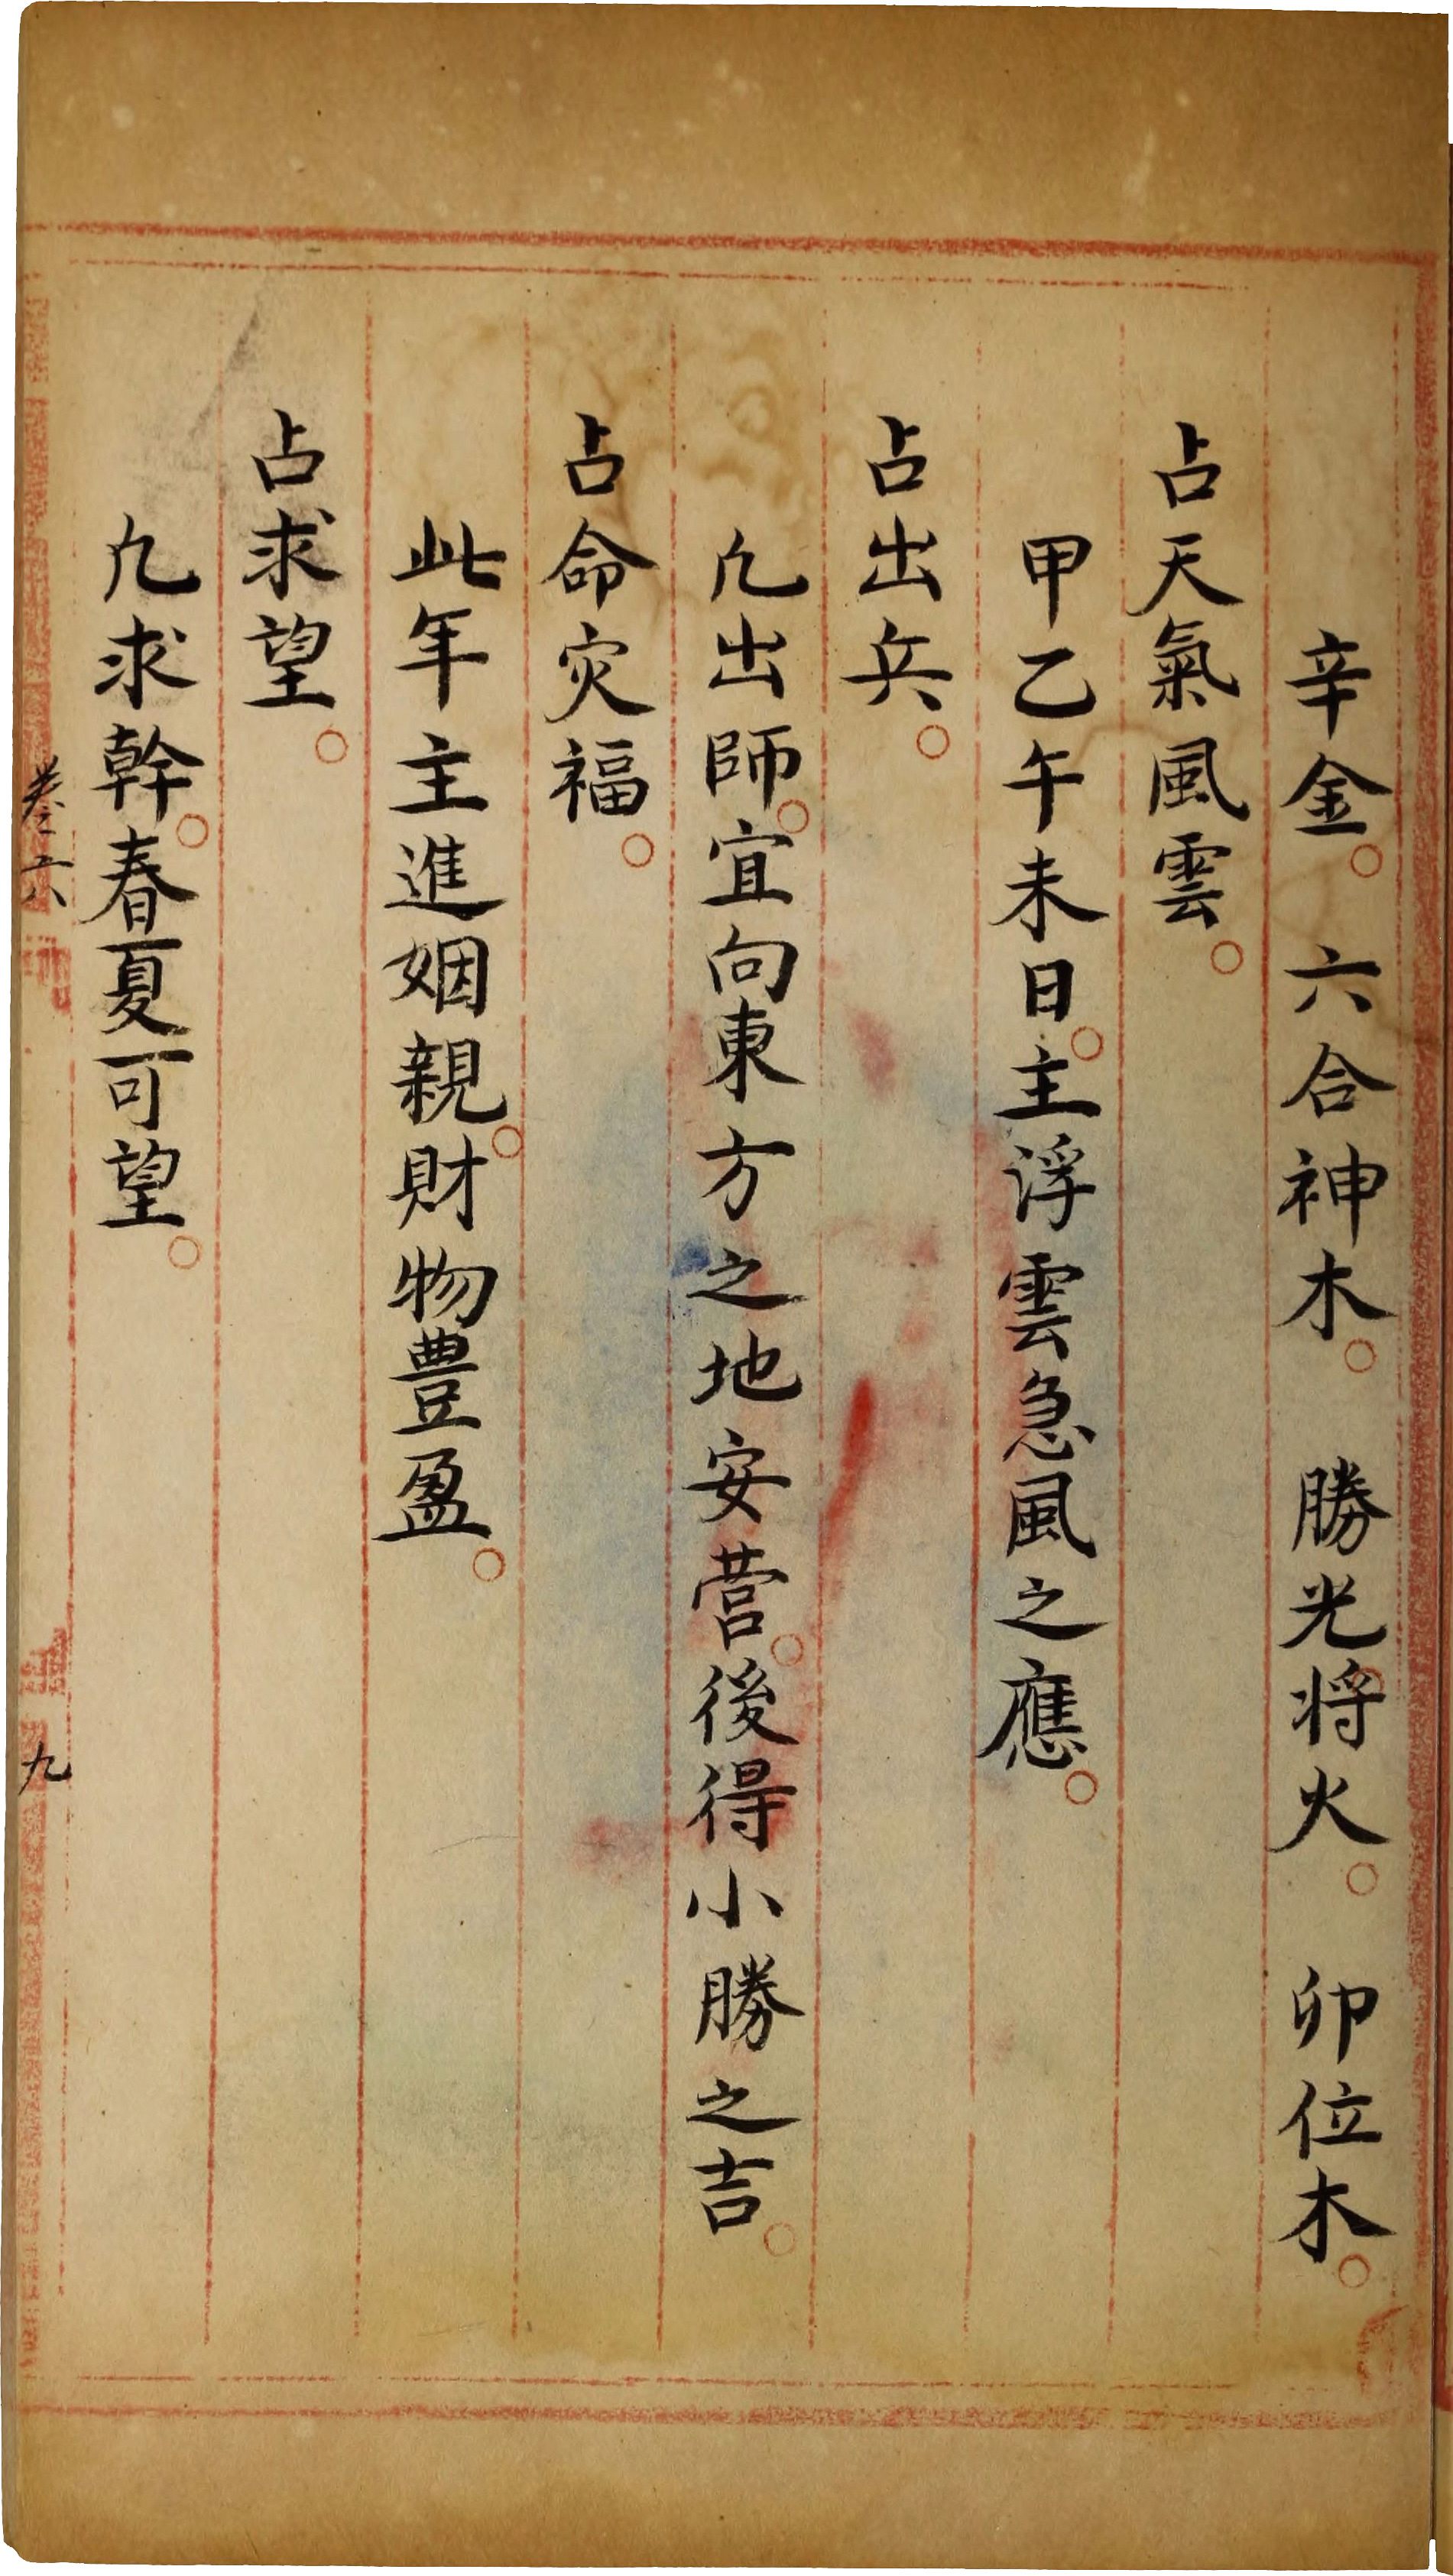 辛金。六合神木。勝光将火。卯位木。
占天氣風雲。
甲乙午未日。主浮雲急風之應。
占出兵。
凢出師。宜向東方之地安营。後得小勝之吉。
占命灾福。
此年主進姻親。財物豊盈。
占求望。
凢求幹。春夏可望。
卷六
九